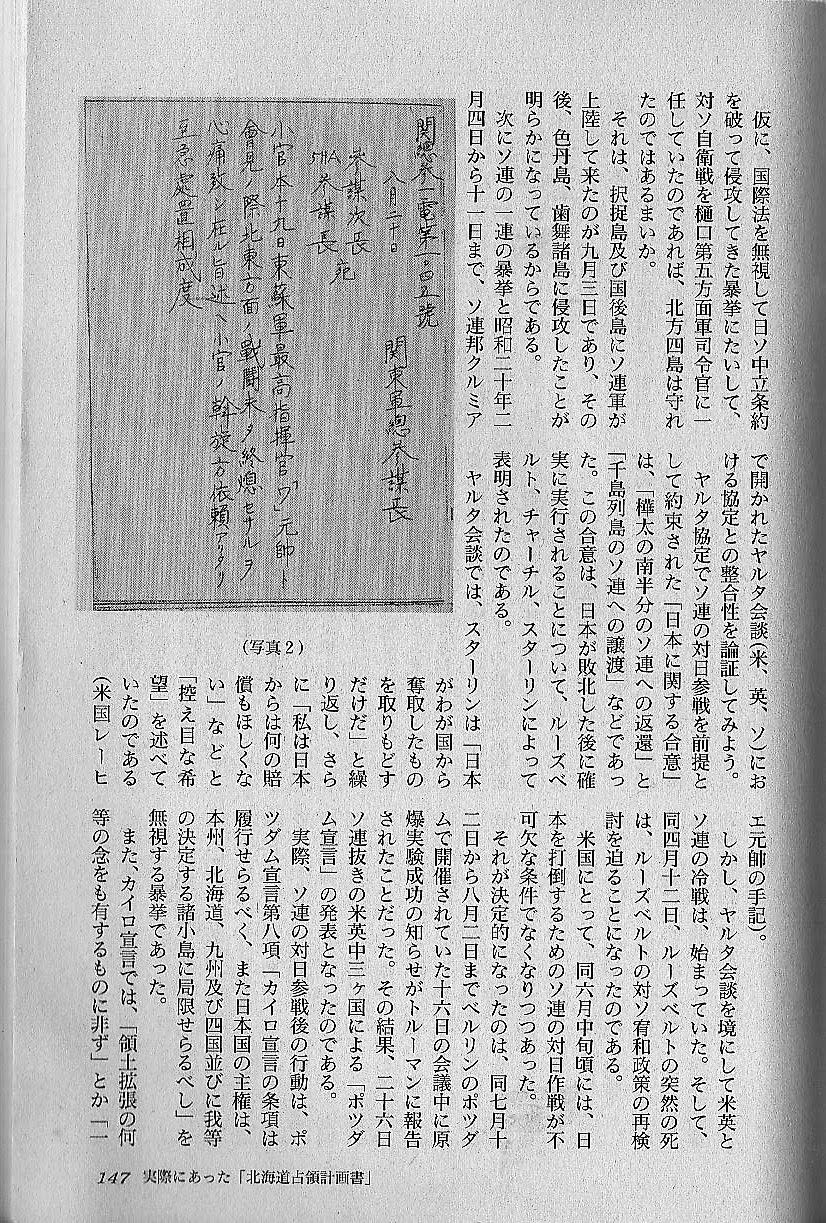 仮に、国際法を無視して日ソ中立条約
を破って侵攻してきた暴挙にたいして、
対ソ自衛戦を樋口第五方面軍司令官に一
任していたのであれば、北方四島は守れ
たのではあるまいか。
それは、択捉島及び国後島にソ連軍が
上陸して来たのが九月三日であり、その
後、色丹島、歯舞諸島に侵攻したことが
明らかになっているからである。
次にソ連の一連の暴挙と昭和二十年二
月四日から十一日まで、ソ連邦クルミア
關總参一電第一〇四五號
八月二十日
關東軍總参謀長
参謀次長宛
5HA参謀長
小官本十九日東蘇軍最高指揮官「ワ」元帥ト
會見ノ際北東方面ノ戰鬪未タ終熄セサルヲ
心痛致シ在ル旨述ヘ小官ノ斡旋方依頼アリタリ
至急處置相成度
(写真2)
で開かれたヤルタ会談(米、英、ソ)にお
ける協定との整合性を論証してみよう。
ヤルタ協定でソ連の対日参戦を前提と
して約束された「日本に関する合意」
は、「樺太の南半分のソ連への返還」と
「千島列島のソ連への譲渡」などであっ
た。この合意は、日本が敗北した後に確
実に実行されることについて、ルーズベ
ルト、チャーチル、スターリンによって
表明されたのである。
ヤルタ会談では、スターリンは「日本
がわが国から
奪取したもの
を取りもどす
だけだ」と繰
り返し、さら
に「私は日本
からは何の賠
償もほしくな
い」などと
「控え目な希
望」を述べて
いたのである
(米国レーヒ
エ元帥の手記)。
しかし、ヤルタ会談を境にして米英と
ソ連の冷戦は、始まっていた。そして、
同四月十二日、ルーズベルトの突然の死
は、ルーズベルトの対ソ宥和政策の再検
討を迫ることになったのである。
米国にとって、同六月中旬頃には、日
本を打倒するためのソ連の対日作戦が不
可欠な条件でなくなりつつあった。
それが決定的になったのは、同七月十
二日から八月二日までベルリンのポツダ
ムで開催されていた十六日の会議中に原
爆実験成功の知らせがトルーマンに報告
されたことだった。その結果、二十六日
ソ連抜きの米英中三ヶ国による「ポツダ
ム宣言」の発表となったのである。
実際、ソ連の対日参戦後の行動は、ポ
ツダム宣言第八項「カイロ宣言の条項は
履行せらるべく、また日本国の主権は、
本州、北海道、九州及び四国並びに我等
の決定する諸小島に局限せらるべし」を
無視する暴挙であった。
また、カイロ宣言では、「領土拡張の何
等の念をも有するものに非ず」とか「一
147 実際にあった「北海道占領計画書」